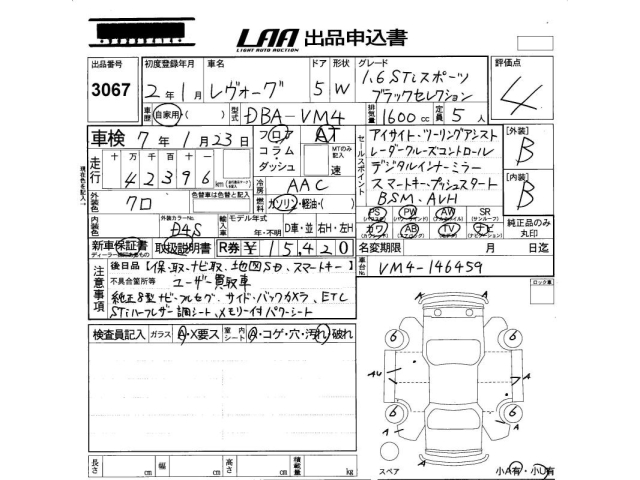 LAA 出品申込書
LIGHT AUTO AUCTION
出品番号 初度登録年月 車名 ドア 形状 グレード 評価点
3067 2年1月 レヴォーグ 5 W 1.6 STiスポーツ ブラックセレクション 4
車歴 自家用・( ) 型式 DBA-VM4 排気量 1600cc 定員 5人
車検 7年1月23日 フロア AT セールスポイント アイサイト・ツーリングアシスト [外装] B
走行 十万 万 千 百 十 一 コラム・ MTのみ記入 レーダークルーズコントロール
42396 ダッシュ 速 デジタルインナーミラー
冷房 AAC スマートキー、プッシュスタート [内装] B
外装色 クロ 色替車は色替と記入 燃料 ガソリン・軽油・( ) BSM、AVH
内装色 外装カラーNo. D4S 輸入車 モデル年式 年・不明 D車・並 右H・左H
PS PW AW SR 純正品のみ丸印
カワ AB TV ナビ
新車保証書 取扱説明書 R券 ¥15,420 名変期限 月 日迄
ディーラー印にあるもの
注意事項 後日品【保・取・ナビ取、地図SD、スマートキー】 車台No. VM4-146459
不具合箇所等 ユーザー買取車 ロック車
純正8型ナビ・フルセグ、サイド・バックカメラ、ETC
STiハーフレザー調シート、メモリー付パワーシート
検査員記入 ガラス A・X要ス 室内シート A・コゲ・穴・汚れ・破れ
6 6
AU A
6 6
A A
A
長さ cm 幅 cm 高さ cm 積載量 kg スペア 小A有・小U有